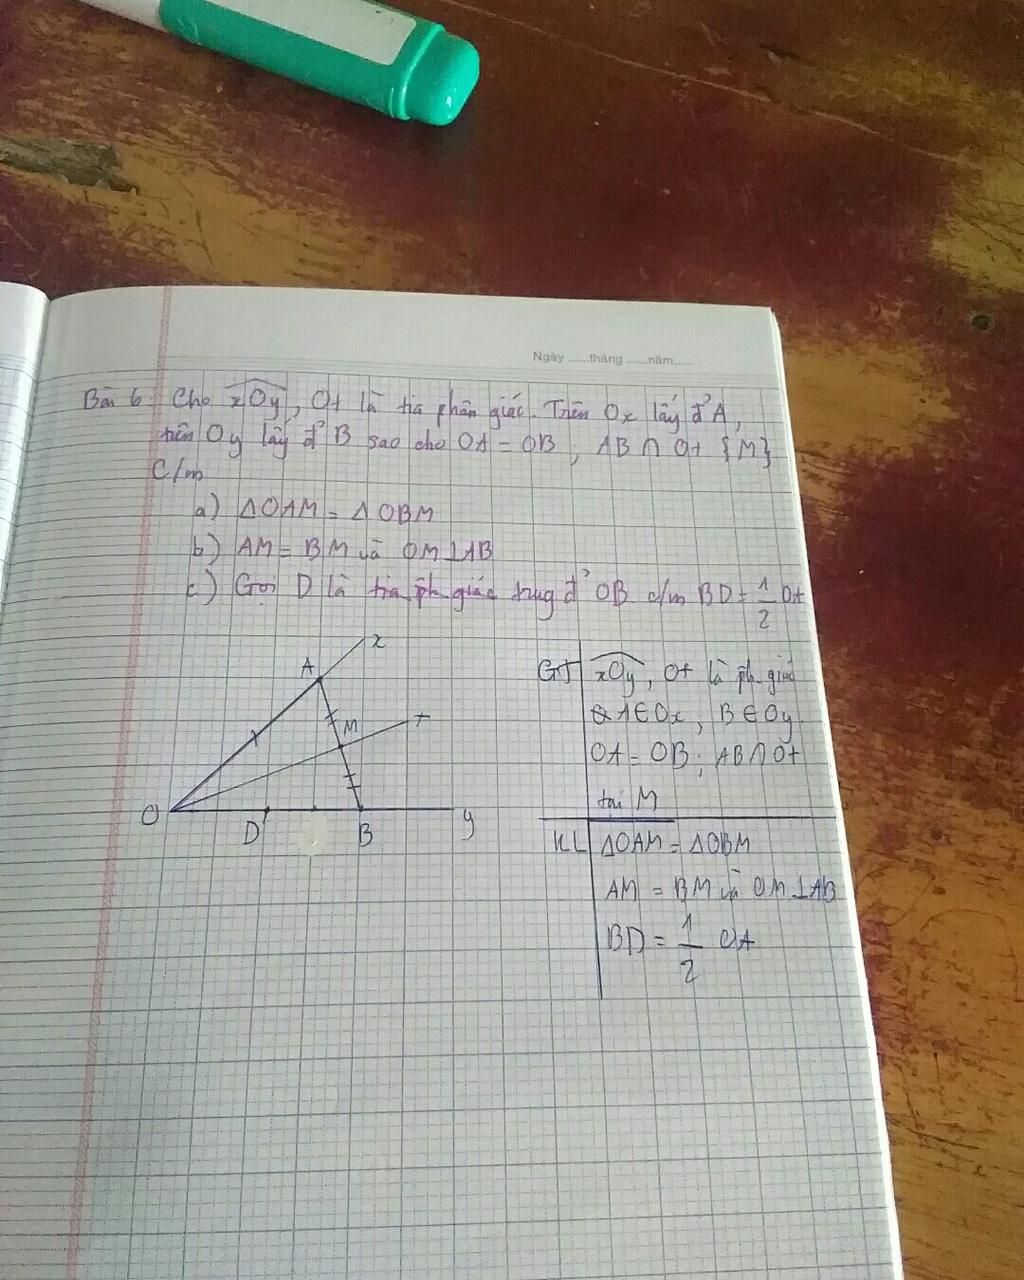 Ngày ......tháng ......năm......
Bài 6 Cho xOy, Ot là tia phân giác. Trên Ox lấy đ' A,
trên Oy lấy đ' B sao cho OA = OB ; AB ∩ Ot {M}
C/m
a) ΔOAM = ΔOBM
b) AM = BM và OM⊥AB
c) Gọi D là tia ph giác trug đ' OB c/m BD = 1/2 OA
x
A
M t
O D B y
GT xOy, Ot là ph giác
A∈Ox, B∈Oy
OA = OB ; AB∩Ot
tại M
KL ΔOAM = ΔOBM
AM = BM và OM⊥AB
BD = 1/2 OA